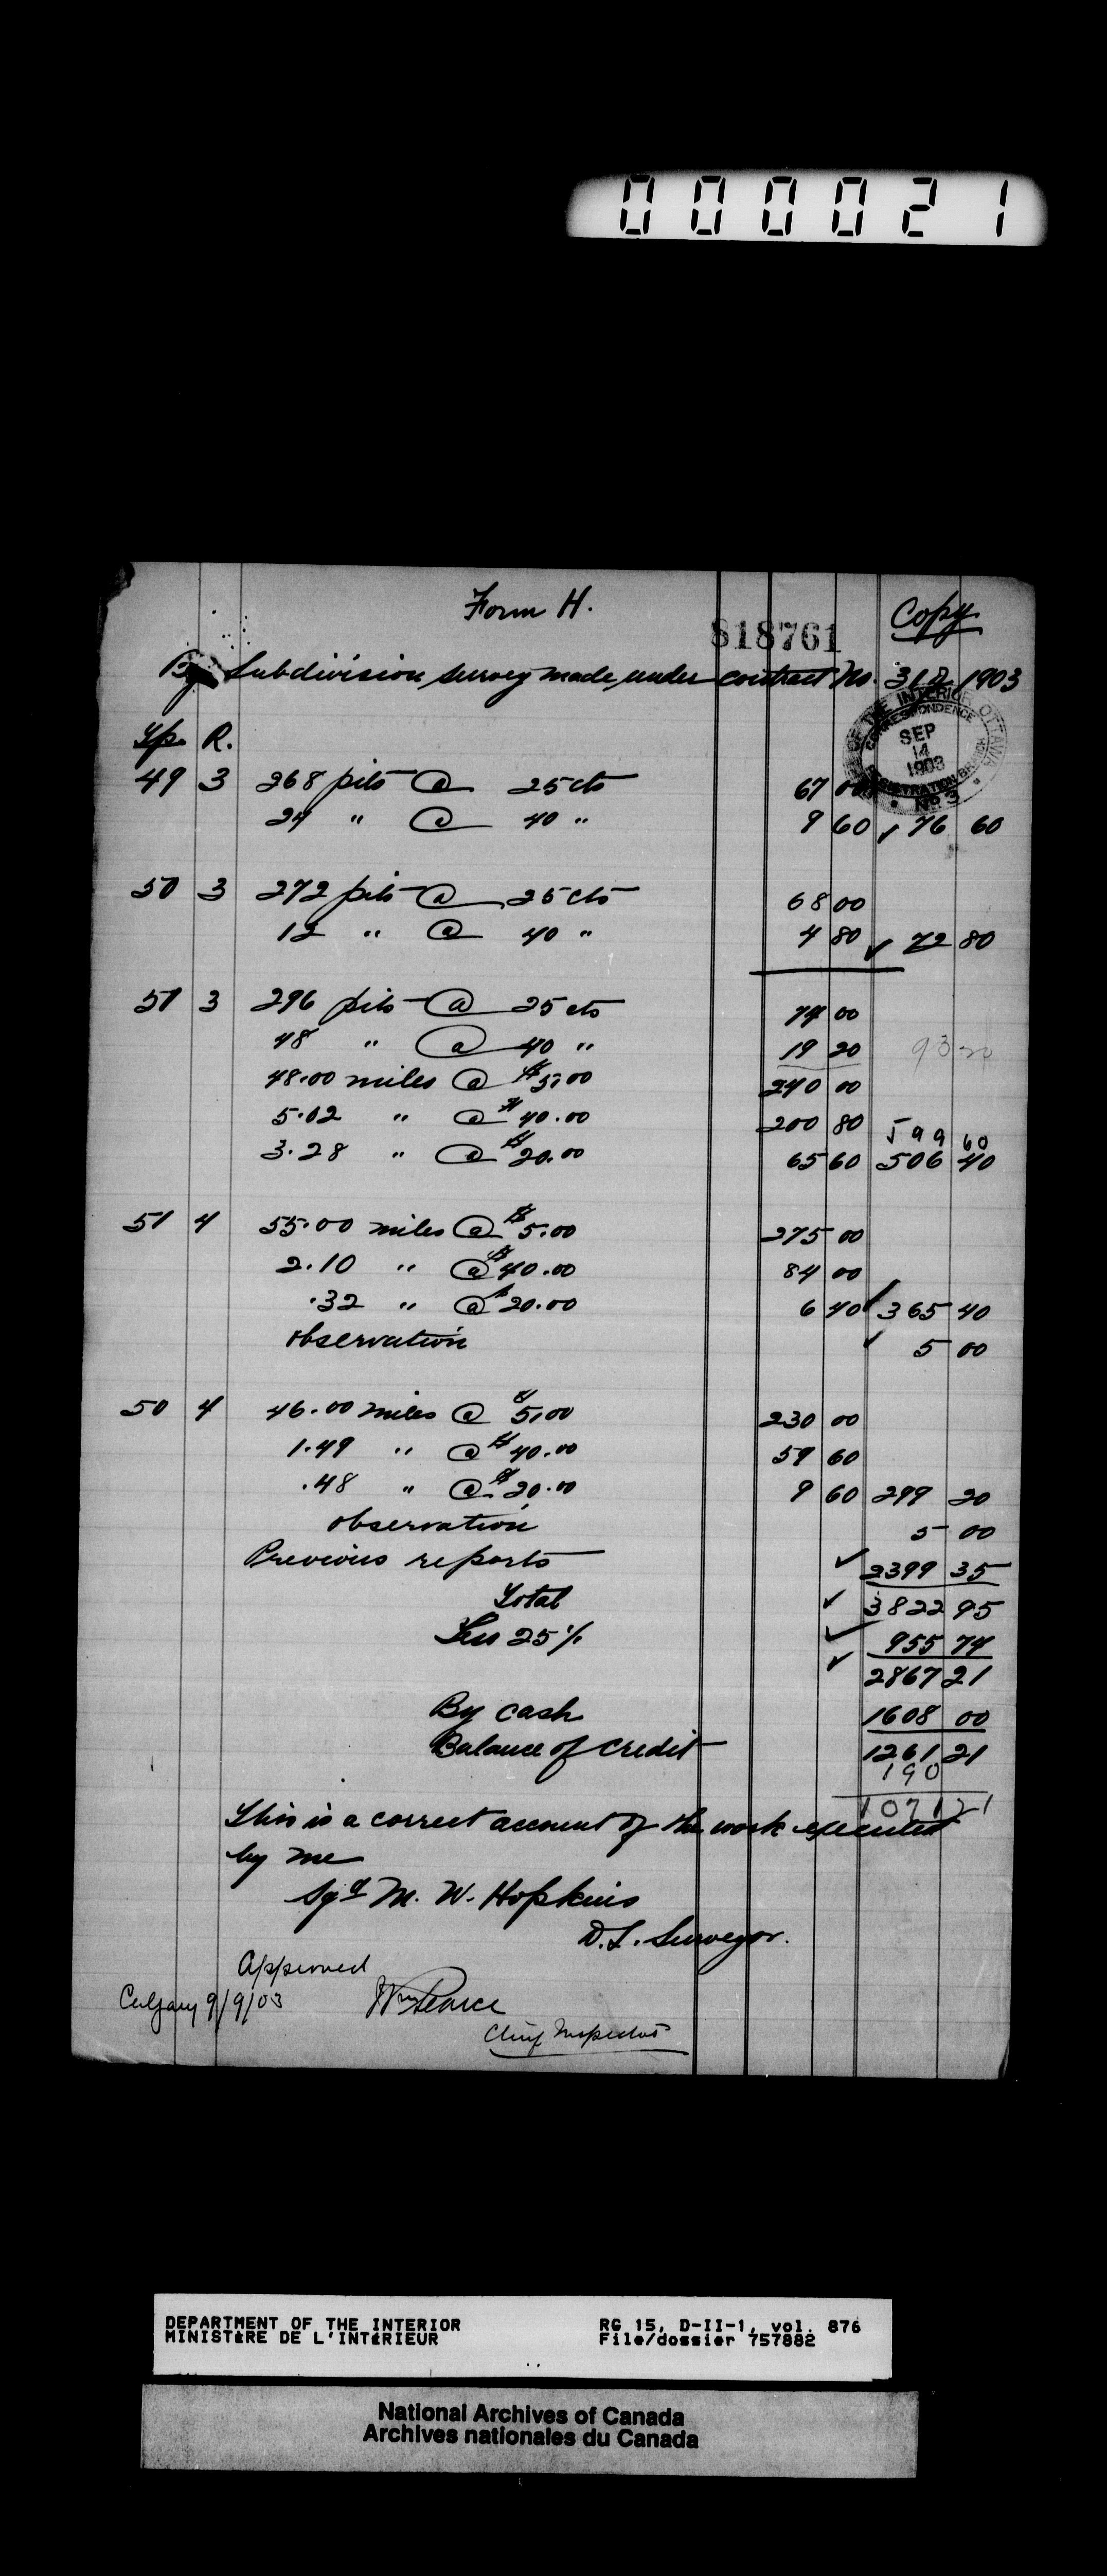 000021
Form H. Copy
818761
By Subdivision survey made under contract No. 312 1903
OF THE INTERIOR OTTAWA
CORRESPONDENCE
SEP
14
1903
REGISTRATION BR
No 3
Tp. R.
49 3 268 pits @ 25 cts 67 00
24 " @ 40 " 9 60 ✓ 76 60
50 3 272 pits @ 25 cts 68 00
12 " @ 40 " 4 80 ✓ 72 80
51 3 296 pits @ 25 cts 74 00
48 " @ 40 " 19 20 93 20
48.00 miles @ $5.00 240 00
5.02 " @ $40.00 200 80 599 60
3.28 " @ $20.00 65 60 506 40
51 4 55.00 miles @ $5.00 275 00
2.10 " @ $40.00 84 00
.32 " @ $20.00 6 40 ✓ 365 40
observation ✓ 5 00
50 4 46.00 miles @ $5.00 230 00
1.49 " @ $40.00 59 60
.48 " @ $20.00 9 60 299 20
observation 5 00
Previous reports ✓ 2399 35
Total ✓ 3822 95
Less 25% ✓ 955 74
✓ 2867 21
By cash 1608 00
Balance of credit 1261 21
190
1071 21
This is a correct account of the work executed
by me
Sgd M. W. Hopkins
D. L. Surveyor.
Approved
Calgary 9/9/03 Wm Pearce
Chief Inspector
DEPARTMENT OF THE INTERIOR RG 15, D-II-1, vol. 876
MINISTÈRE DE L'INTÉRIEUR File/dossier 757882
National Archives of Canada
Archives nationales du Canada